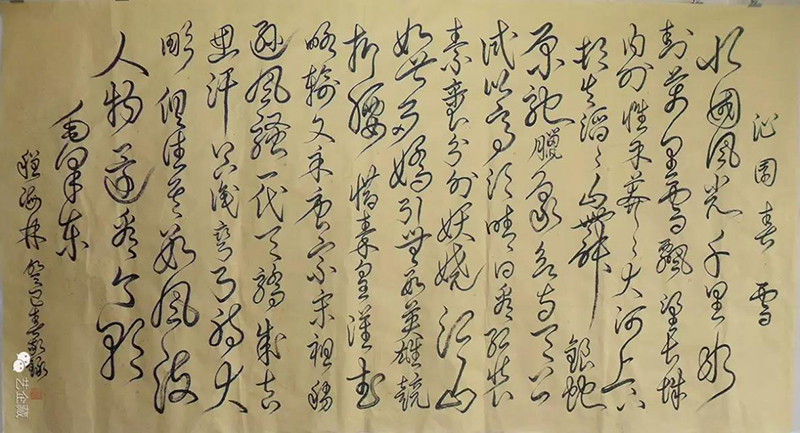 沁园春 雪
北國风光千里冰
封萬里雪飘望长城
内外惟余莽々大河上下
顿失滔々山舞 銀蛇
原驰臘象欲与天公
试比高须晴日看红装
素裹分外妖娆江山
如此多嬌引无数英雄競
折腰惜秦皇汉武
略输文采唐宗宋祖稍
逊风骚一代天骄成吉
思汗只识弯弓射大
雕俱往矣数风流
人物还看今朝
毛泽东
海林 癸巳春敬録
艺企藏